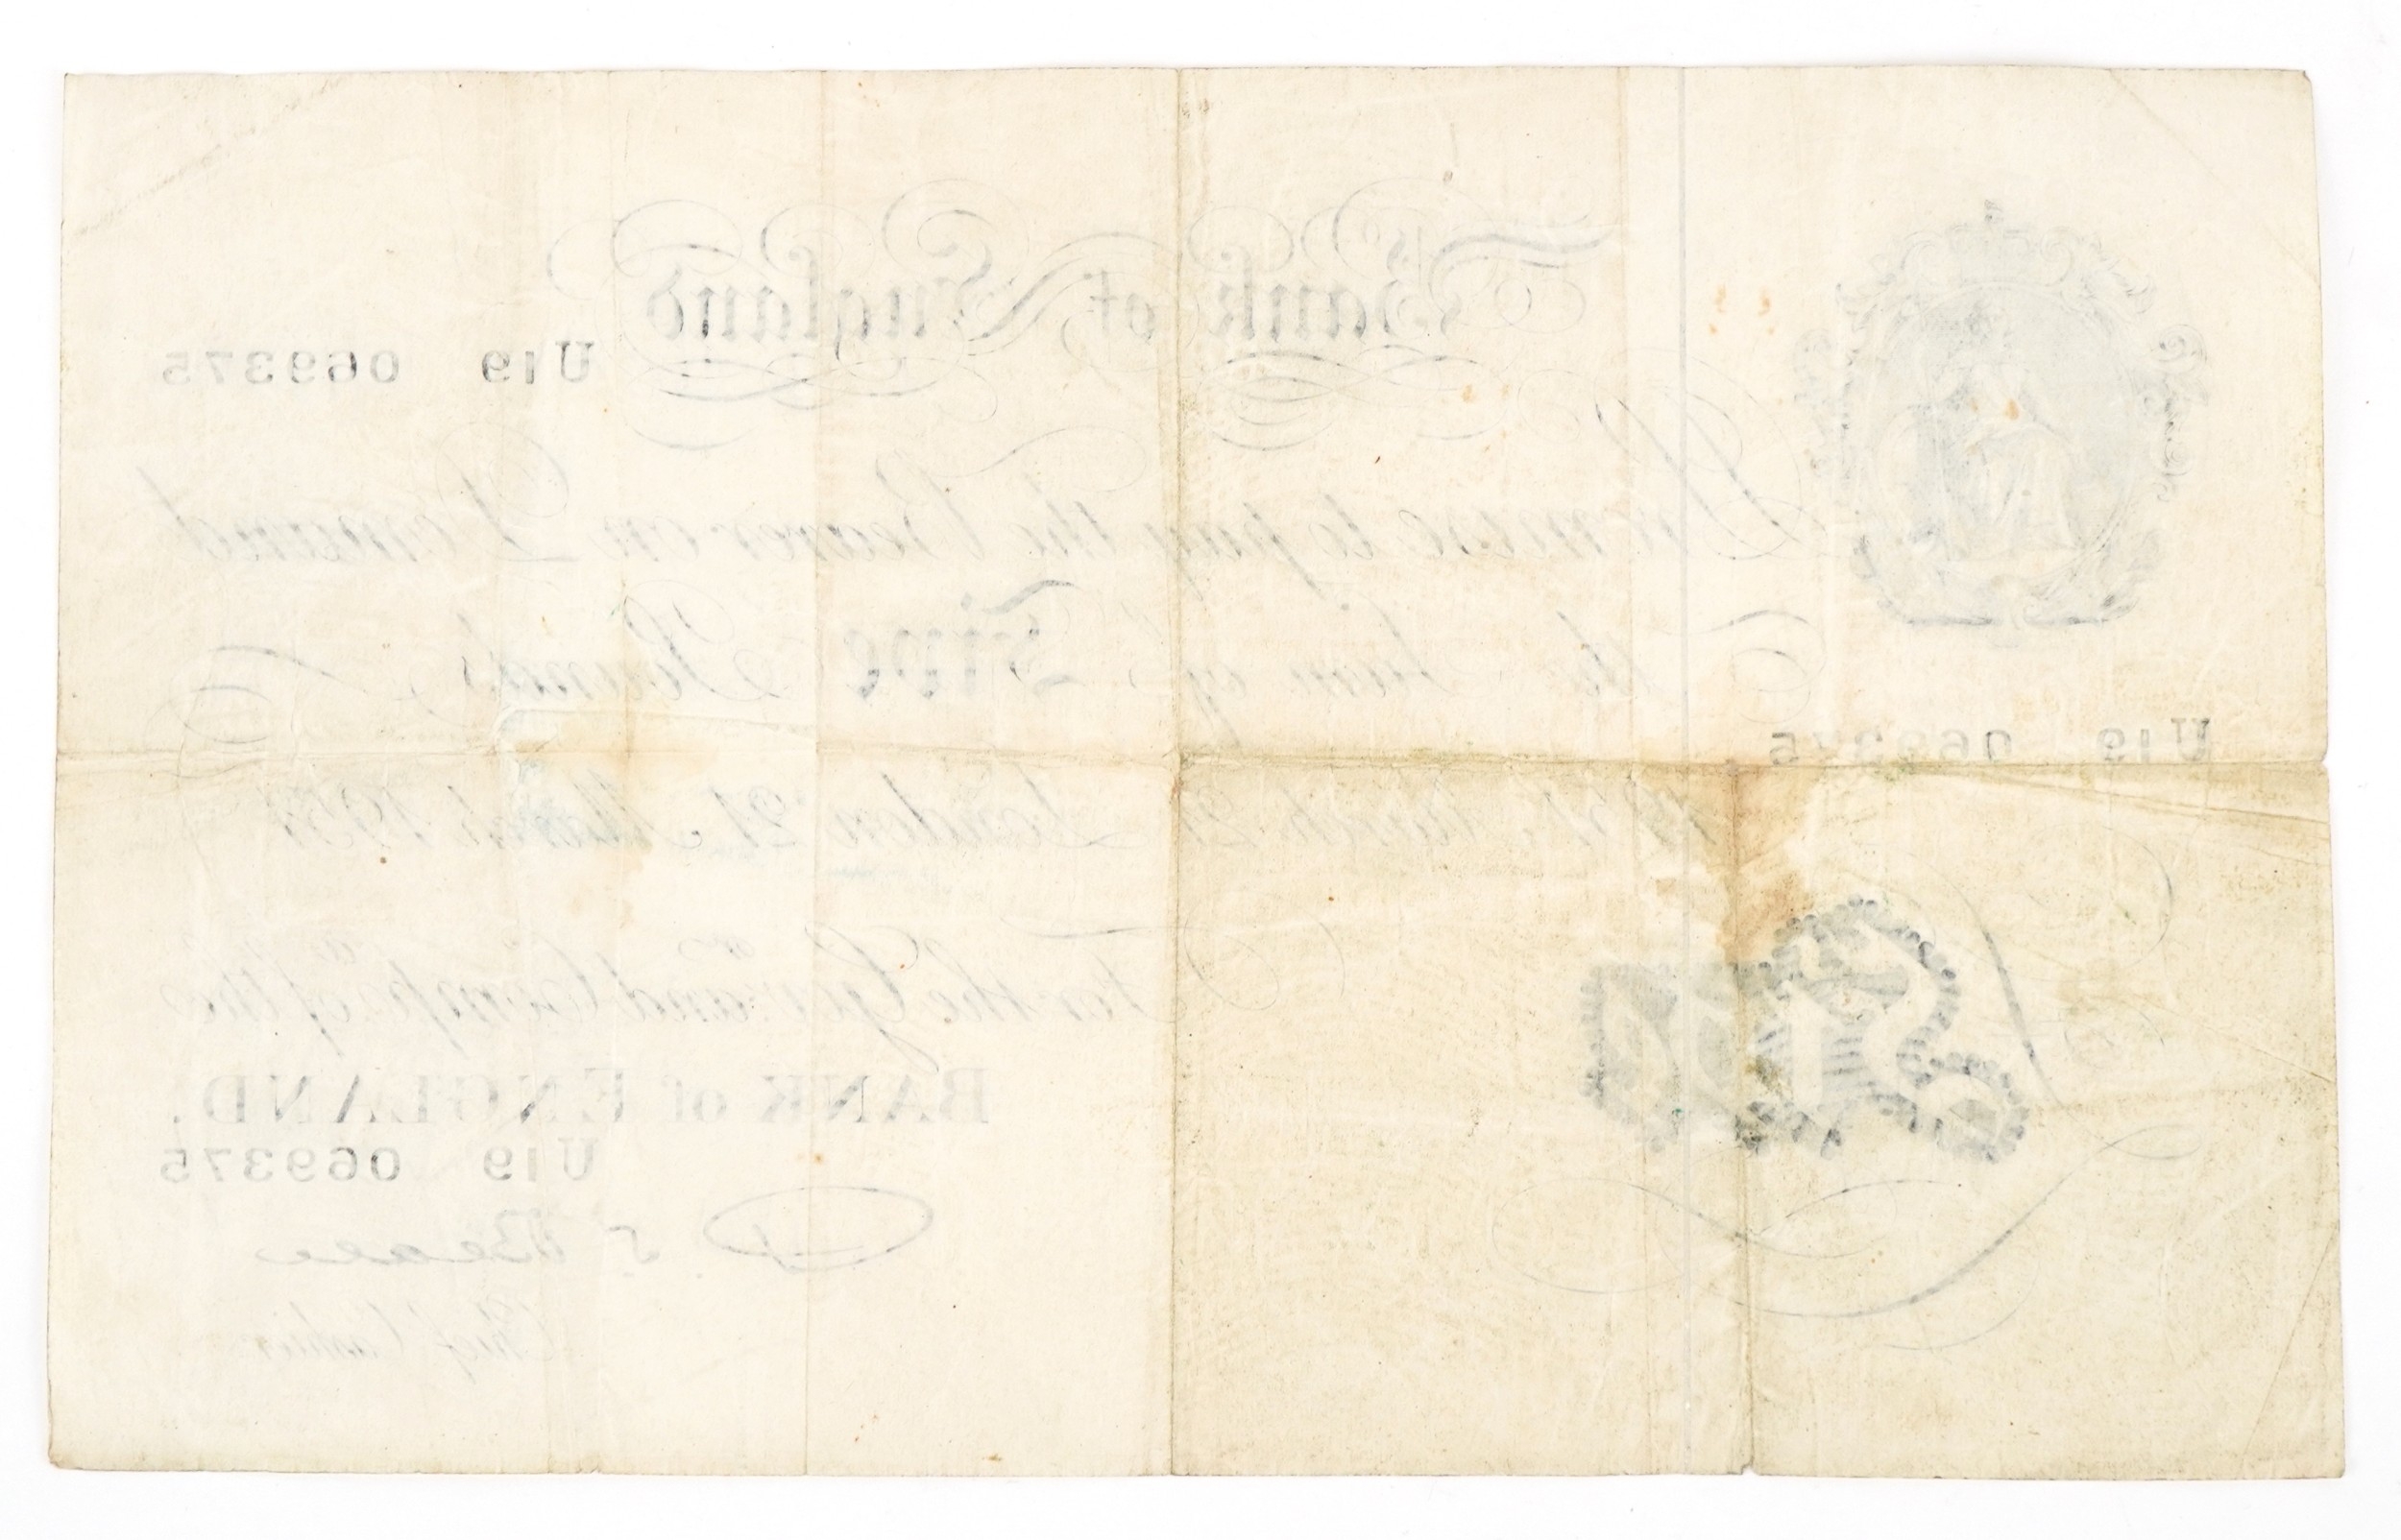 Bank of England
U19 069375
Promise to pay the Bearer on Demand
the Sum of Five Pounds
U19 069375
London 21 March 1951
For the Govr. and Compa. of the
BANK of ENGLAND.
Five
U19 069375
P S Beale
Chief Cashier